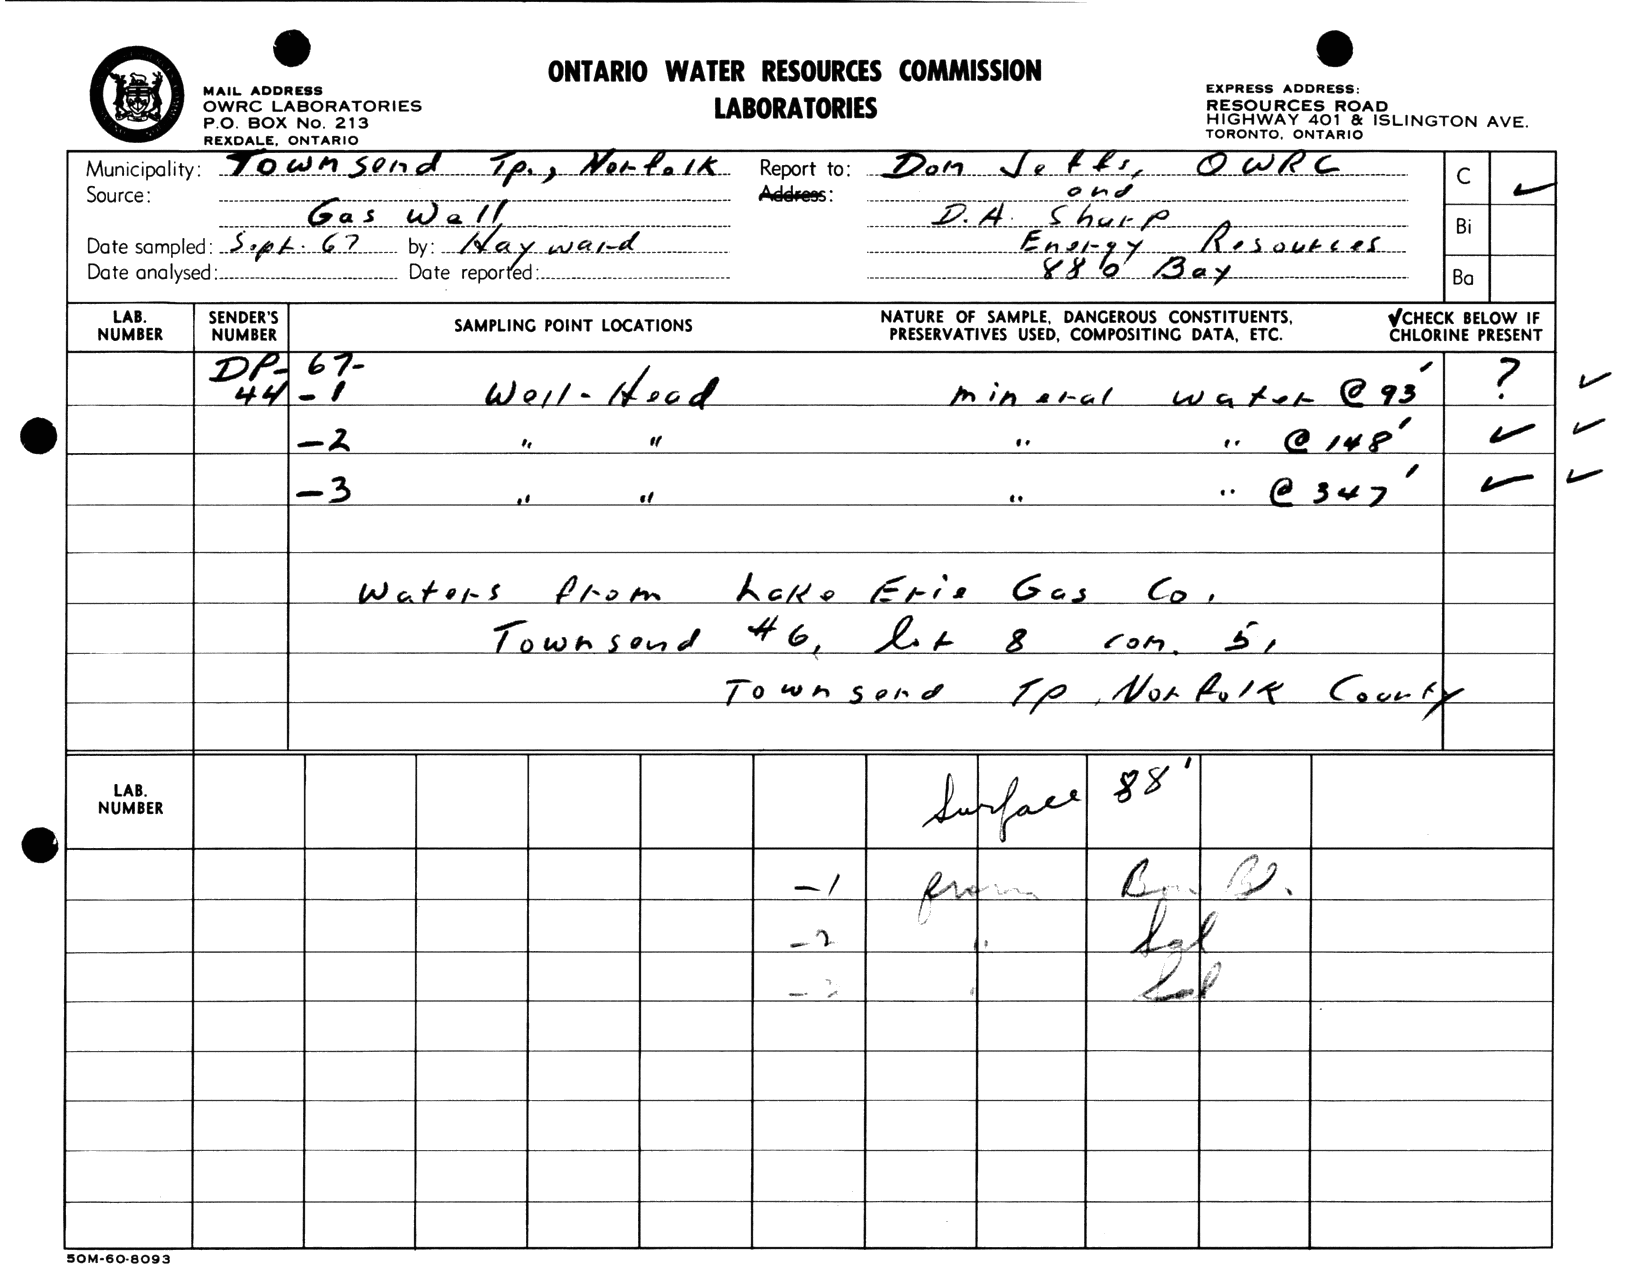 ONTARIO WATER RESOURCES COMMISSION
LABORATORIES
MAIL ADDRESS
OWRC LABORATORIES
P.O. BOX No. 213
REXDALE, ONTARIO
EXPRESS ADDRESS:
RESOURCES ROAD
HIGHWAY 401 & ISLINGTON AVE.
TORONTO, ONTARIO
Municipality: Townsend Tp., Norfolk
Source:
Gas Well
Date sampled: Sept. 67 by: Hayward
Date analysed: Date reported:
Report to: Don Jeffs, OWRC
Address: and
D.A. Sharp
Energy Resources
880 Bay
C ✓
Bi
Ba
LAB. NUMBER SENDER'S NUMBER SAMPLING POINT LOCATIONS NATURE OF SAMPLE, DANGEROUS CONSTITUENTS, PRESERVATIVES USED, COMPOSITING DATA, ETC. ✓CHECK BELOW IF CHLORINE PRESENT
DP- 67-
44 -1 Well-Head mineral water @ 93' ? ✓
-2 " " " " @ 148' ✓ ✓
-3 " " " " @ 347' ✓ ✓
Waters from Lake Erie Gas Co.
Townsend #6, lot 8 con. 5,
Townsend Tp, Norfolk County
LAB. NUMBER
Surface 88'
-1 from
-2 " Sal
-3 " Sal
50M-60-8093